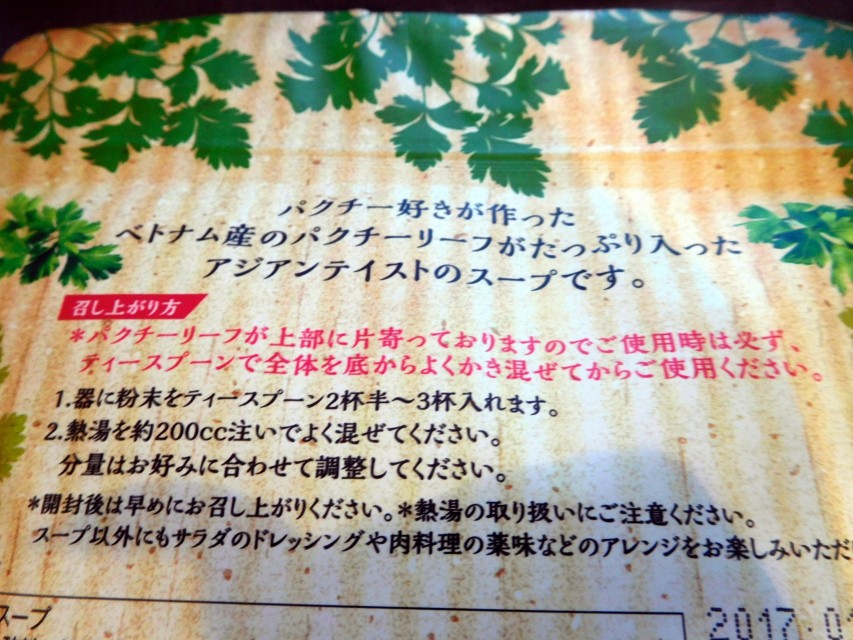 パクチー好きが作った
ベトナム産のパクチーリーフがたっぷり入った
アジアンテイストのスープです。
召し上がり方
*パクチーリーフが上部に片寄っておりますのでご使用時は必ず、
ティースプーンで全体を底からよくかき混ぜてからご使用ください。
1.器に粉末をティースプーン2杯半〜3杯入れます。
2.熱湯を約200cc注いでよく混ぜてください。
分量はお好みに合わせて調整してください。
*開封後は早めにお召し上がりください。*熱湯の取り扱いにご注意ください。
スープ以外にもサラダのドレッシングや肉料理の薬味などのアレンジをお楽しみいただ
スープ
2017.0